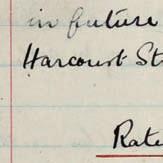 in future
Harcourt St
Rate